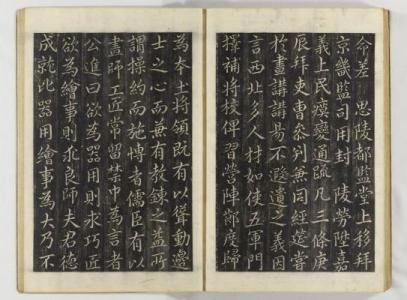 命差 思陵都監堂上移拜
京畿監司用封 陵勞陞嘉
義上民瘼變通疏凡三條庚
辰拜吏曹參判兼同經筵嘗
於晝講講易不遐遺之義因
言西北多人材如使五軍門
擇補將校俾習營陣節度歸
為本土將領既有以聳動邊
士之心而兼有教鍊之益所
謂操約而施博者儒臣有以
畫師工匠常留禁中為言者
公進曰欲為器用則求巧匠
欲為繪事則求良師夫君德
成就比器用繪事為大乃不